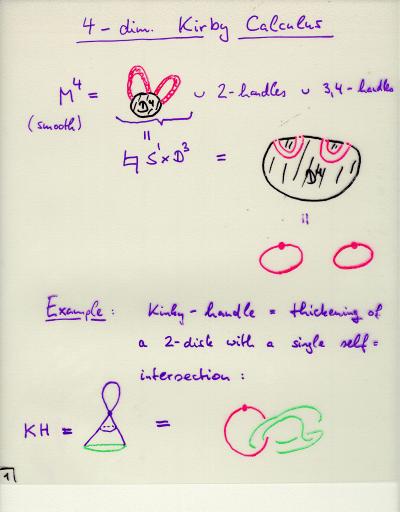 4-dim. Kirby Calculus
M⁴ = D⁴ ∪ 2-handles ∪ 3,4-handles
(smooth)
=
♮ S¹×D³ = D⁴
=
Example: Kinky-handle = thickening of
a 2-disk with a single self=
intersection:
KH = =
1